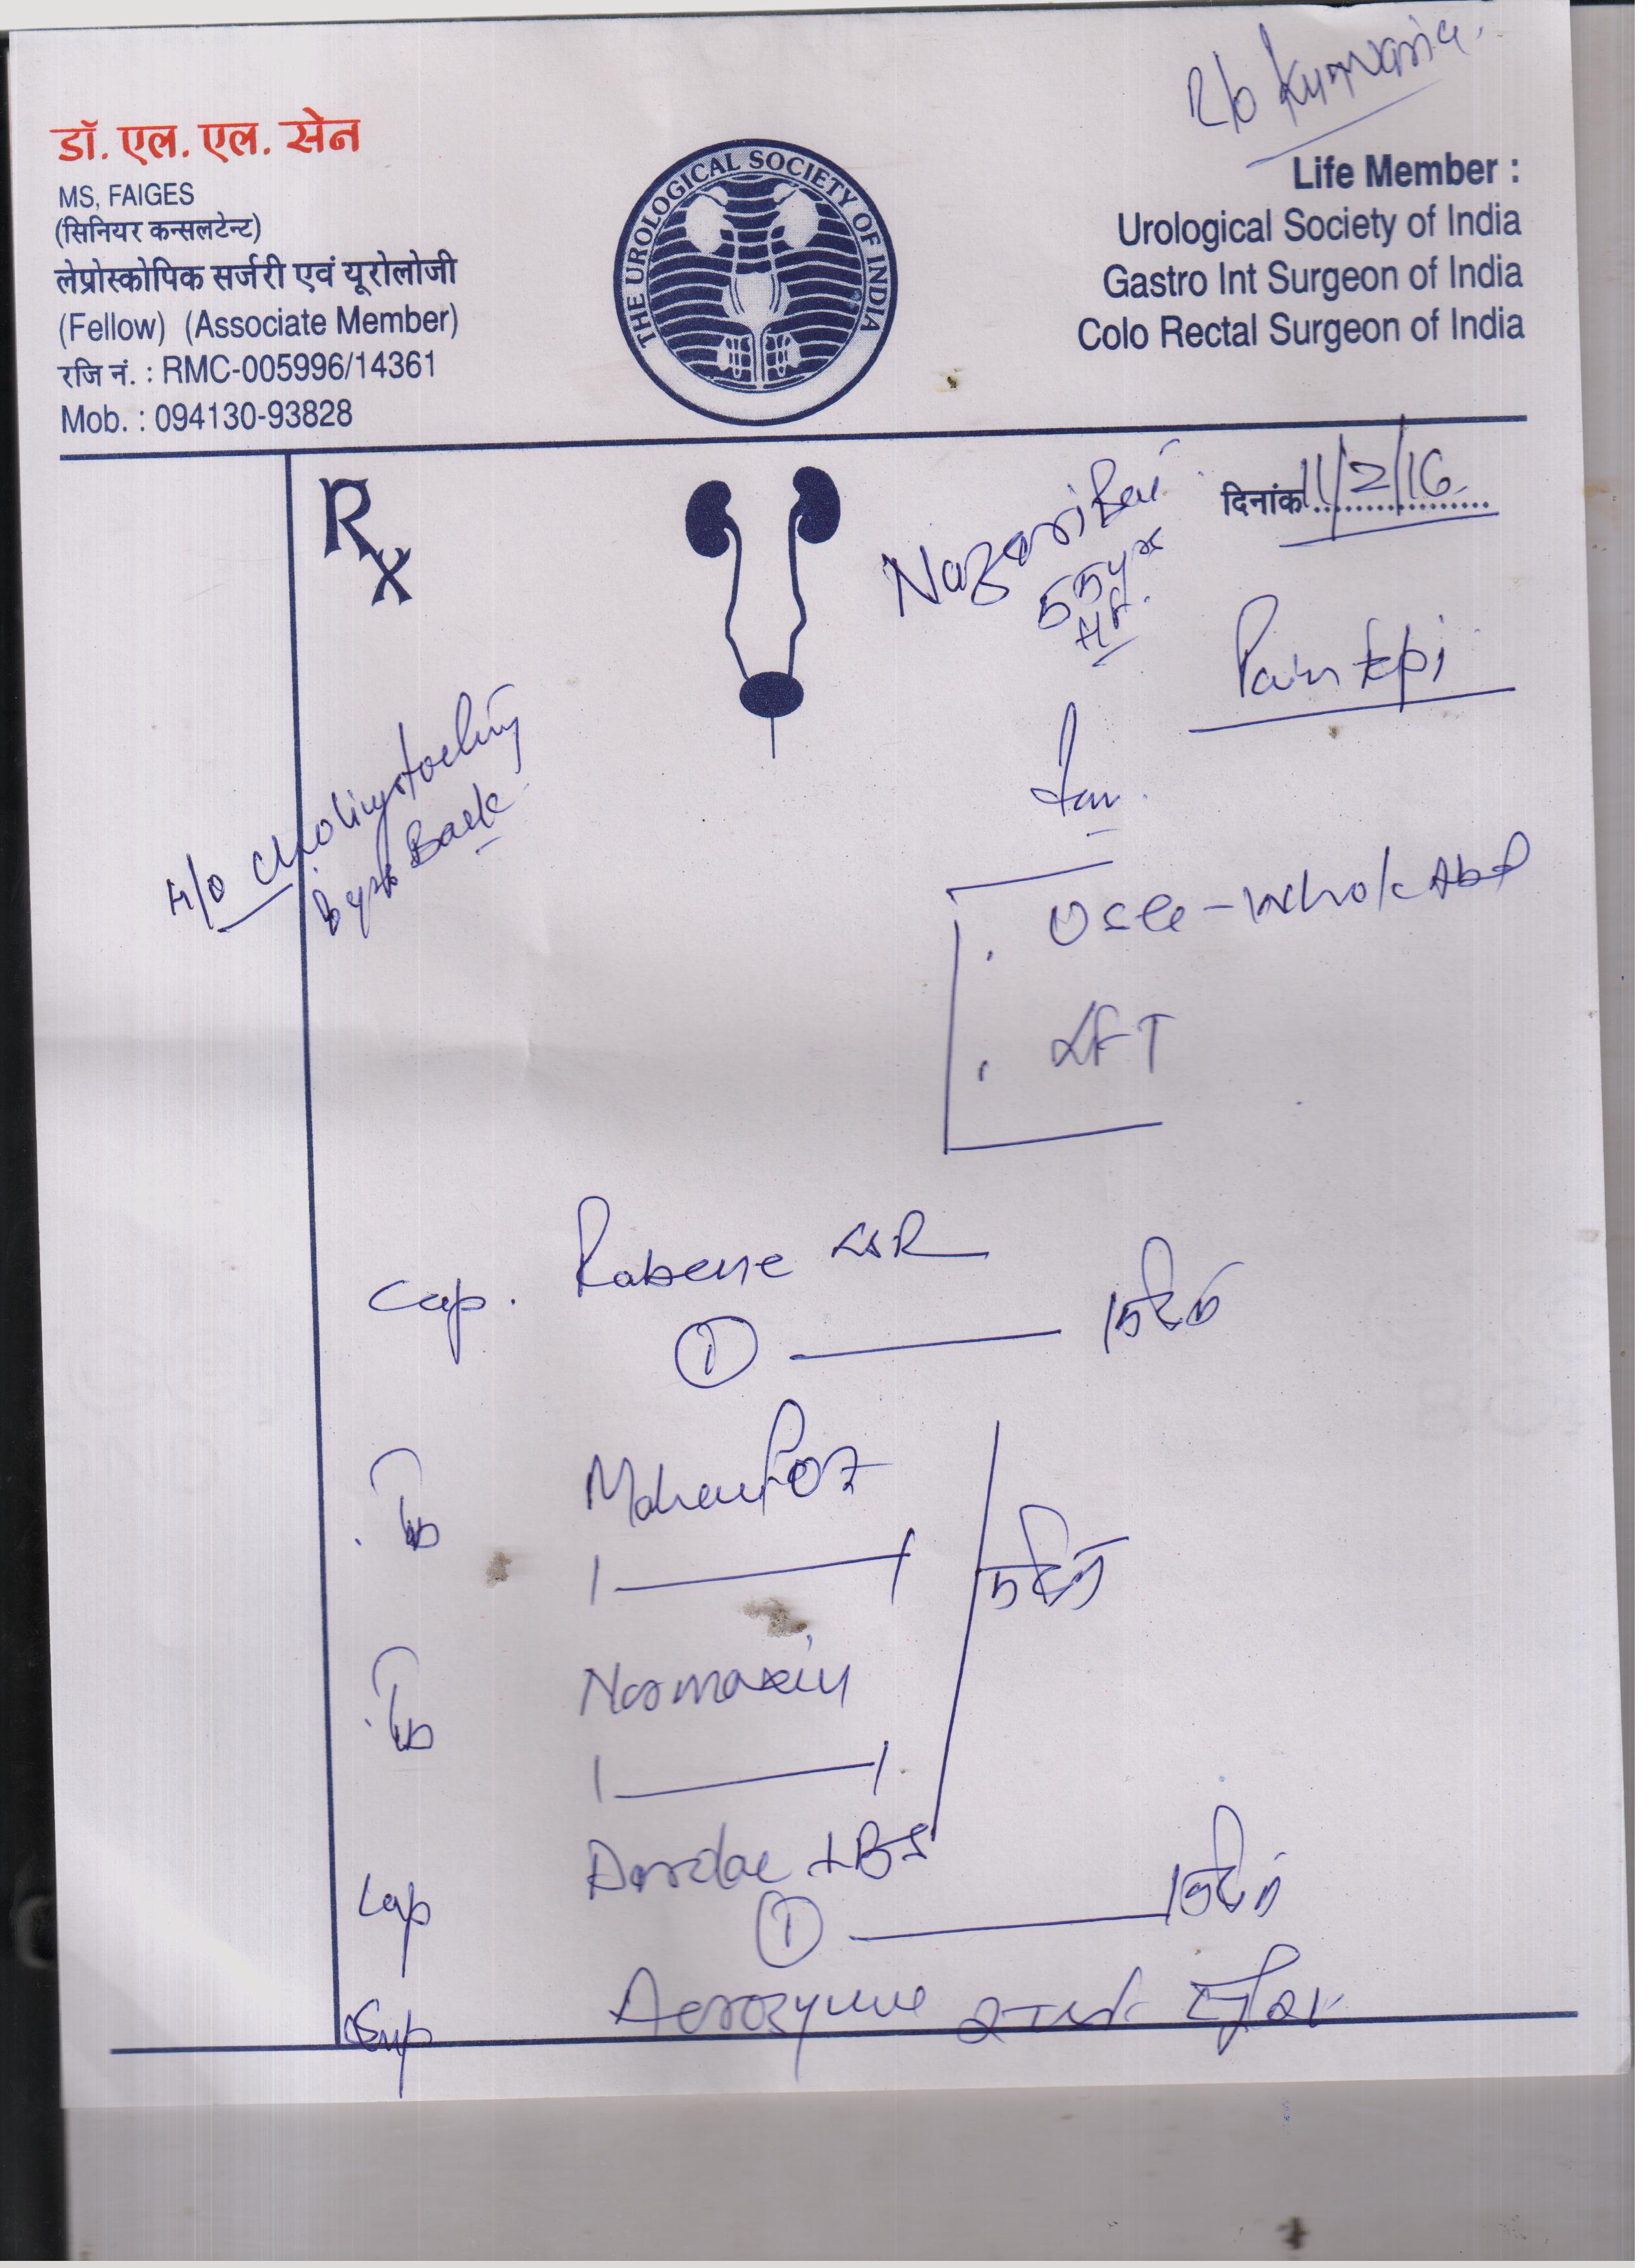 R/o Kunwaria.
डॉ. एल. एल. सेन
MS, FAIGES
(सिनियर कन्सलटेन्ट)
लेप्रोस्कोपिक सर्जरी एवं यूरोलोजी
(Fellow) (Associate Member)
रजि नं. : RMC-005996/14361
Mob. : 094130-93828
THE UROLOGICAL SOCIETY OF INDIA
Life Member :
Urological Society of India
Gastro Int Surgeon of India
Colo Rectal Surgeon of India
Rx
दिनांक 11/2/16
Nazari Bai
55 yrs
Pain Epi
H/o
Back
Whole Abd
LFT
Cap. Rabene LSR
① 15 दिन
Tab
1 — 1
5 दिन
Tab Normaxin
1 — 1
Cap
① 15 दिन
Syp Aerozyme